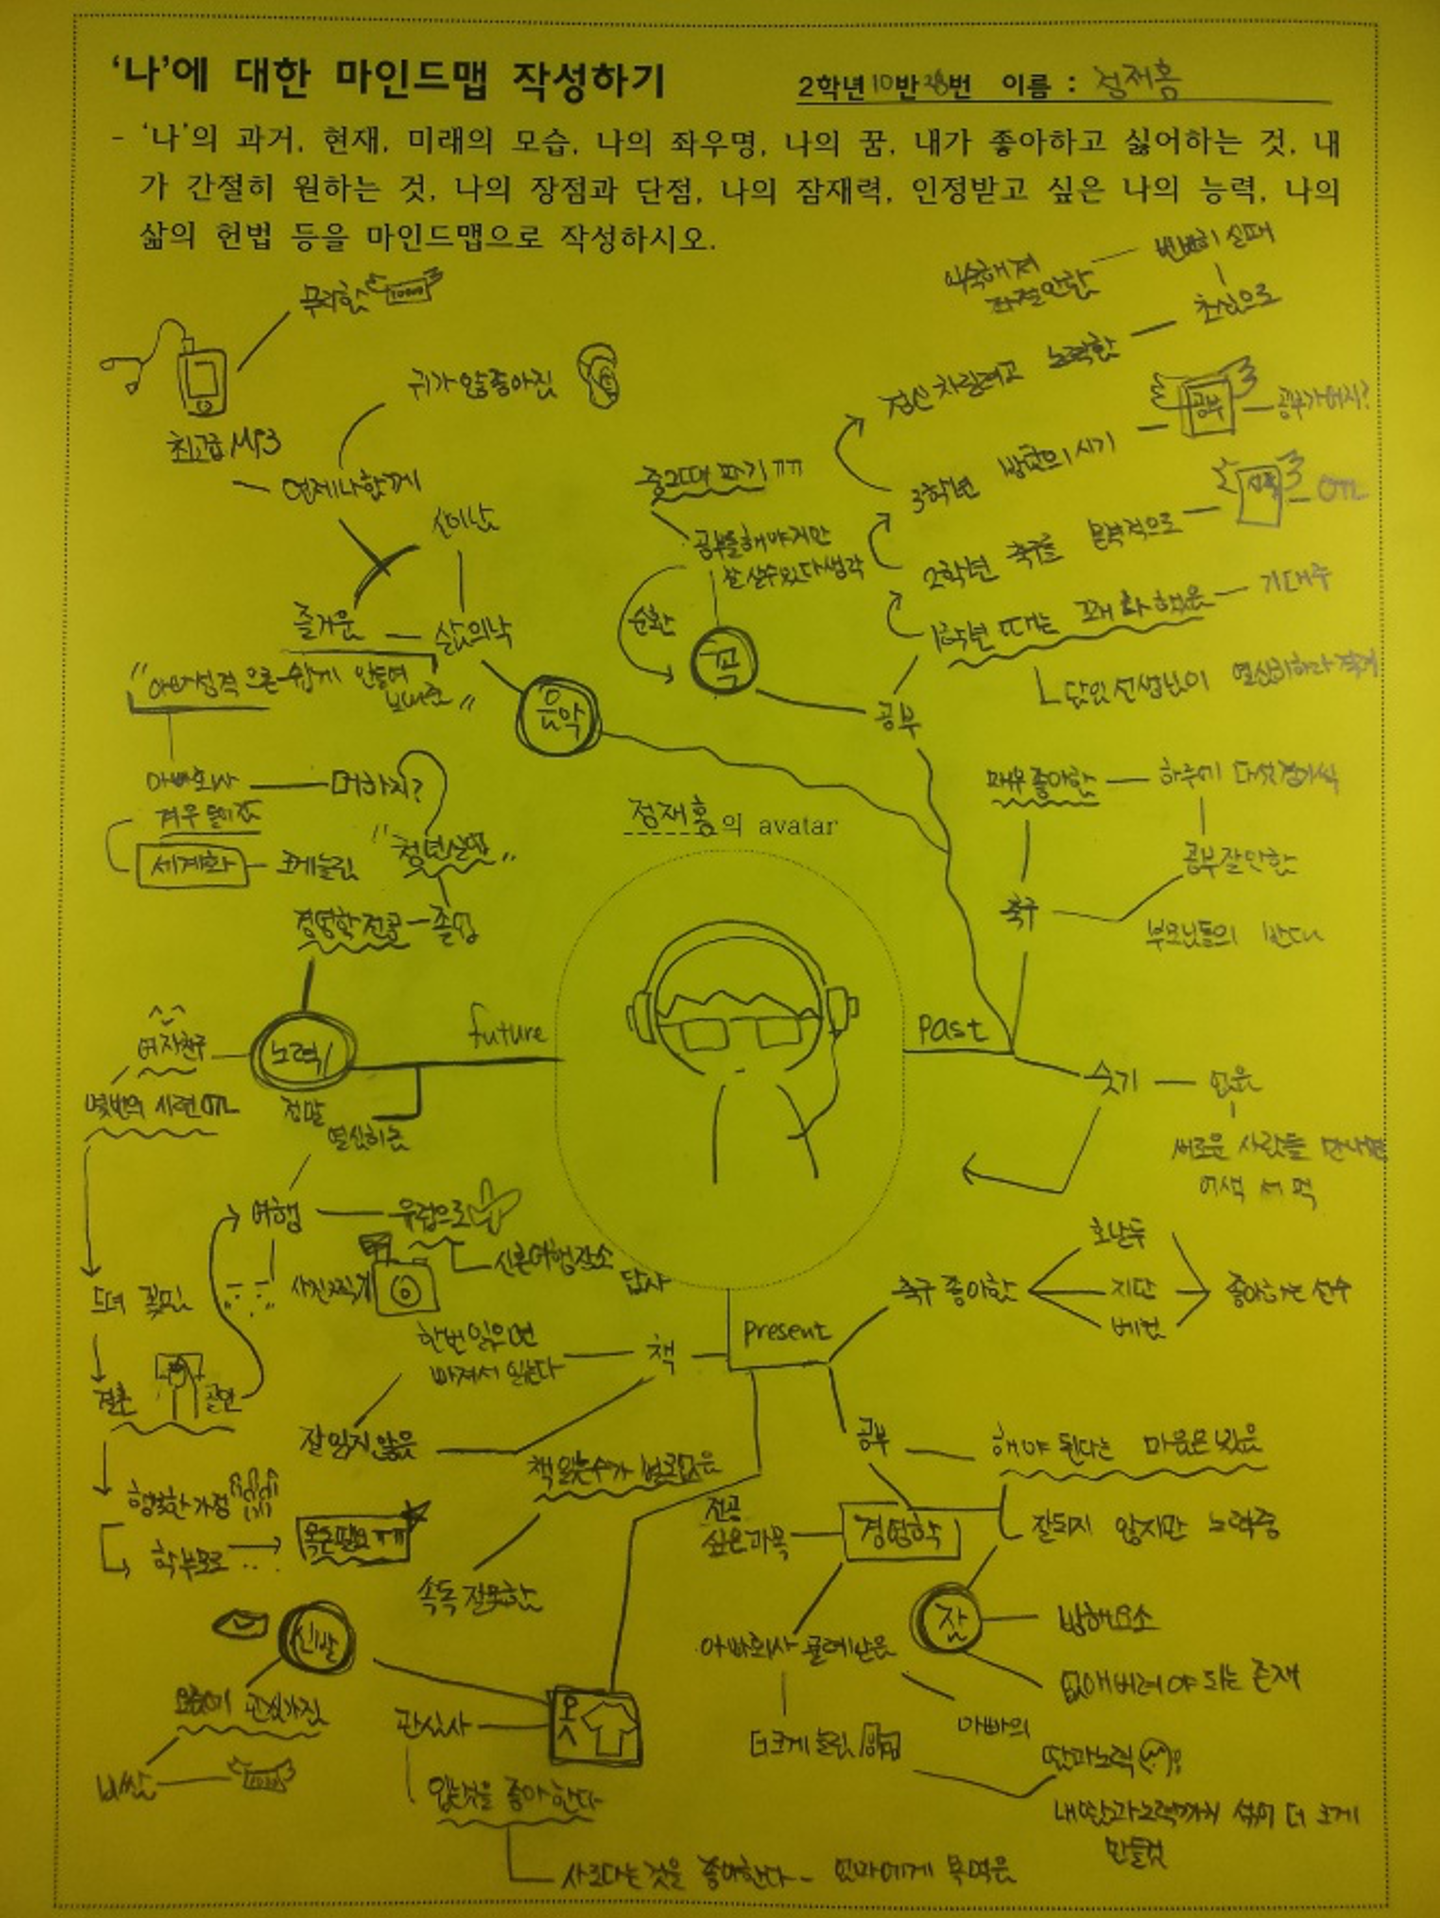 '나'에 대한 마인드맵 작성하기
2학년 10반 28번 이름 : 정재홍
- '나'의 과거, 현재, 미래의 모습, 나의 좌우명, 나의 꿈, 내가 좋아하고 싫어하는 것, 내
가 간절히 원하는 것, 나의 장점과 단점, 나의 잠재력, 인정받고 싶은 나의 능력, 나의
삶의 헌법 등을 마인드맵으로 작성하시오.
번번히 실패
익숙해져
좌절안함
초심으로
무리함
10000
정신 차릴려고 노력함
귀가 안좋아짐
최고급 MP3
공부
공부가 머지?
언제나 함께
중2때 포기 ㅠㅠ
3학년 방황의 시기
OTL
신이난
공부를 해야지만
잘 살수 있다 생각
2학년 축구를 본격적으로
즐거운
삶의 낙
순환
꼭
1학년 때는 꽤 잘 했음
기대주
음악
담임선생님이 열심히하라
공부
아빠회사
머하지?
매우 좋아함
하루에 다섯경기씩
겨우 들어감
정재홍의 avatar
"청년실업"
세계화
크게 놀림
공부 잘 안함
경영학 전공
졸업
축구
부모님들의 반대
future
past
여자친구
노력!
숫기
없음
몇번의 시련 OTL
정말
열심히 논
새로운 사람들 만나면
어색 서먹
여행
유럽으로
신혼여행 장소
답사
호날두
사진찍기
축구 좋아함
지단
좋아하는 선수
베컴
드뎌 꽃핌
present
한번 읽으면
빠져서 읽는다
책
결혼
골인
공부
해야 된다는 마음은 있음
잘 읽지 않음
책 읽는수가 별로 없음
행복한 가정
전공
싶은과목
경영학
잘되지 않지만 노력중
학부모로
속독 잘못함
잠
방해요소
신발
아빠회사 물려 받음
없애버려야 되는 존재
요즘에 관심가짐
옷
관심사
아빠의
땀과 노력
더 크게 늘림
비쌈
입는것을 좋아한다
내 땀과 노력까지 섞어 더 크게
만들것
사러다는 것을 좋아한다 - 엄마에게 욕먹음